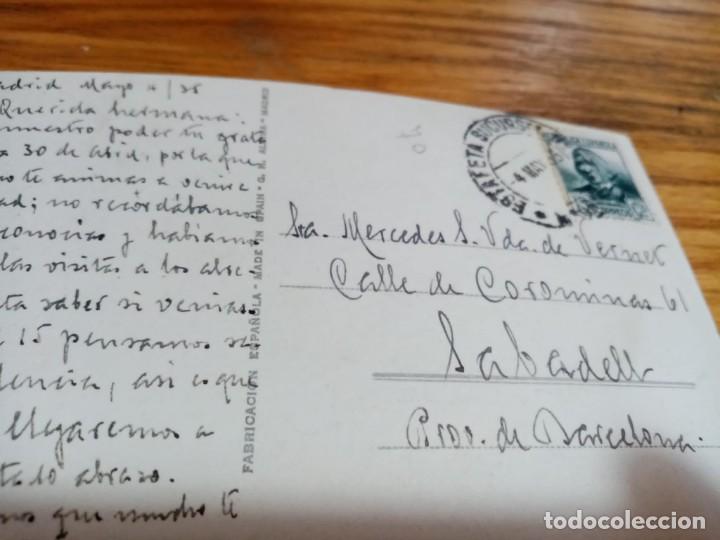 adrid Mayo 4/35
Querida hermana:
nuestro poder tu grata
30 de abril, por la que
te animas a venir
ad; no recordábamos
conocias y habiamo
las visitas a los alre-
ta saber si venias.
15 pensamos sa
lencia, asi es que
llegaremos a
abrazo.
que mucho te
FABRICACION ESPAÑOLA - MADE IN SPAIN - G. H. ALSINA - MADRID
ESTAFETA SUCURS
4 MAY
Sra. Mercedes S. Vda. de Vernet
Calle de Corominas 61
Sabadell
Prov. de Barcelona.
todocoleccion
todocoleccion.net